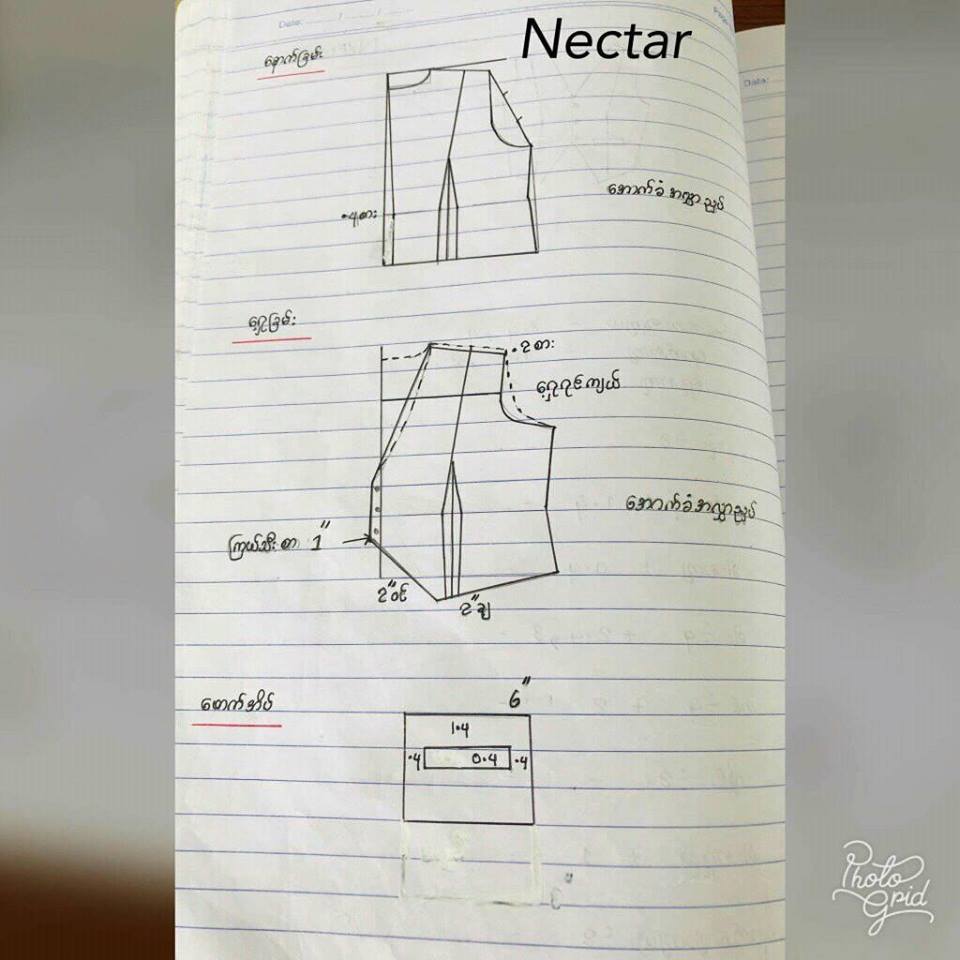 Date:
Nectar
နောက်ခြမ်း
Date:
အောက်ခံအလွှာညှပ်
.၄စား
ရှေ့ခြမ်း
.2စား
ရှေ့ဂျိုင်းကျယ်
အောက်ခံအလွှာညှပ်
ကြယ်သီးစာ 1"
2"ဝင်
2"ချ
6"
1.4
.4 0.4 .4
3"
Photo
Grid